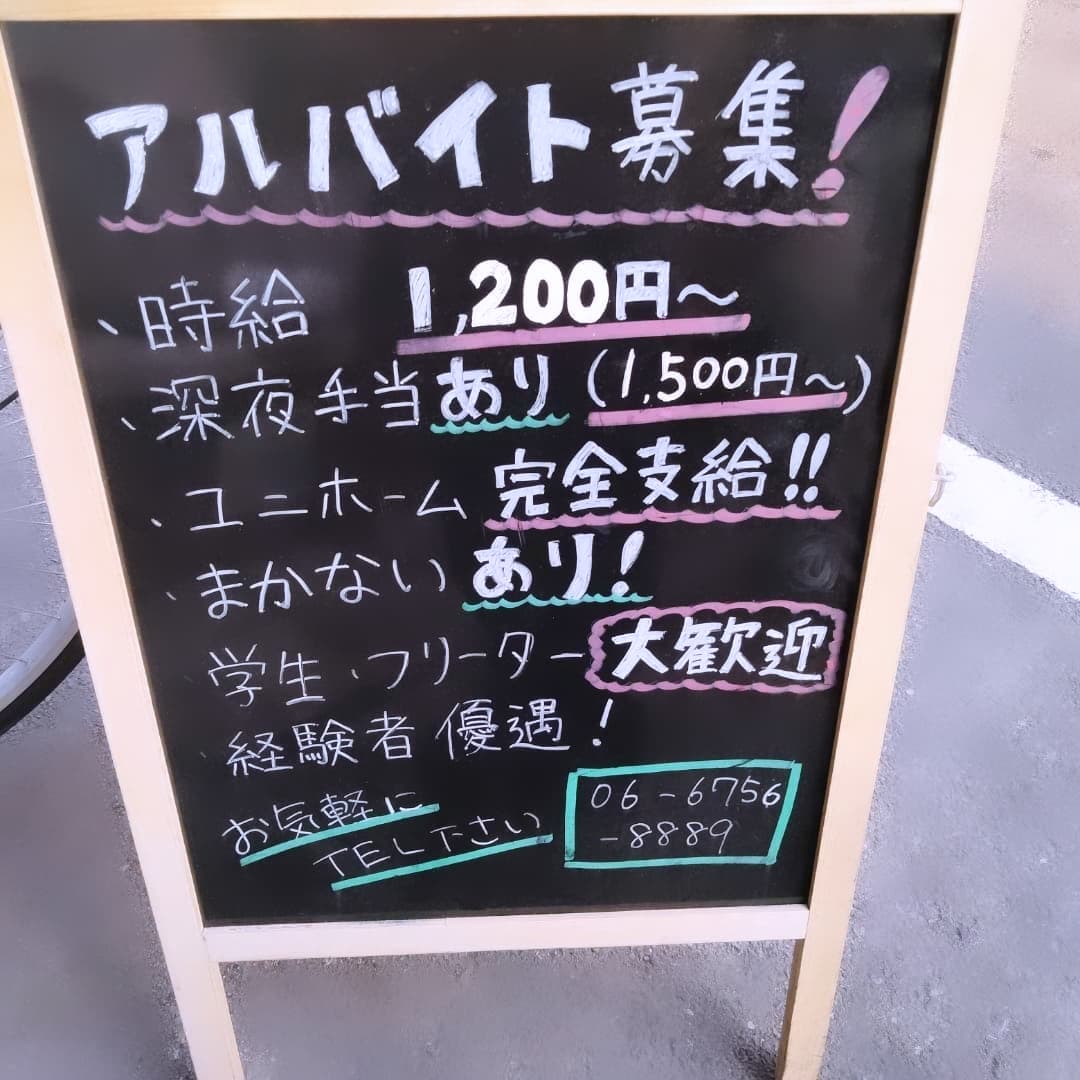 アルバイト募集!
・時給 1,200円~
・深夜手当あり (1,500円~)
・ユニホーム 完全支給!!
・まかない あり!
学生・フリーター 大歓迎
経験者優遇!
お気軽に
TEL下さい
06-6756
-8889